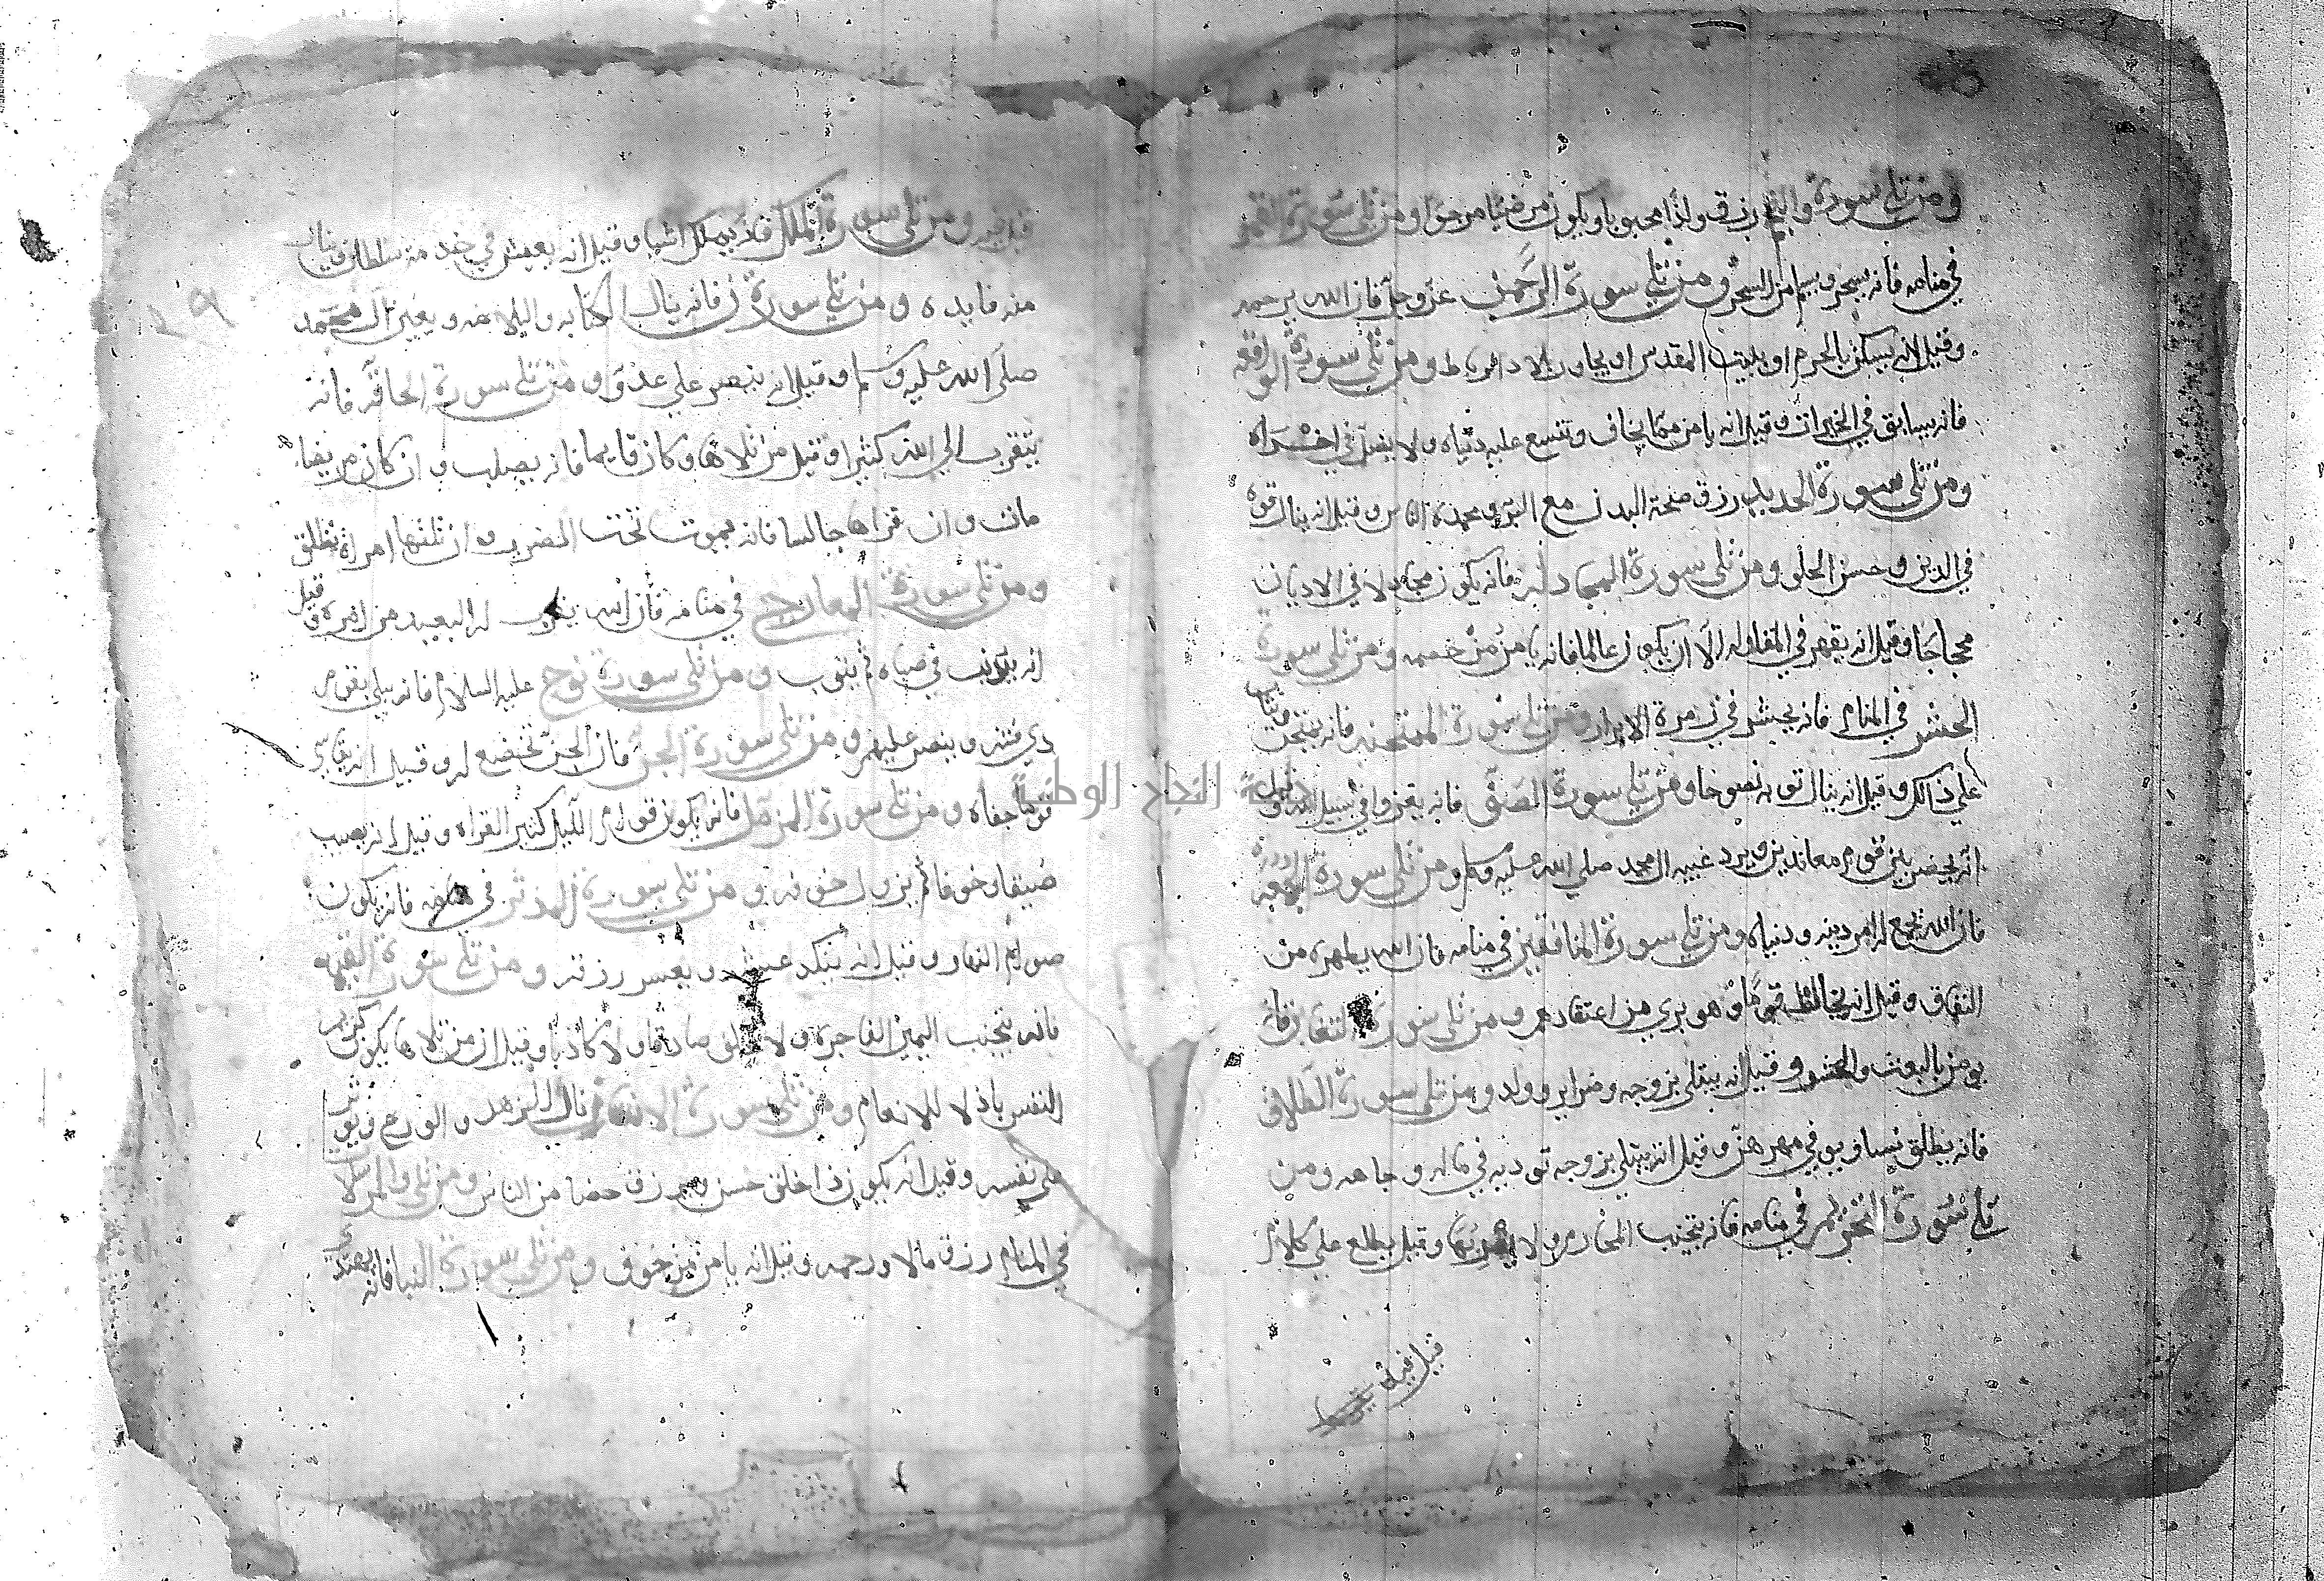 ومن تلى سورة والنجم رزق ولدا محبوبا ويكون مرضيا مرحوما ومن تلى سورة القمر
في منامه فانه يسحر ويسلم من السحر ومن تلى سورة الرحمن عز وجل فان الله يرحمه
وقيل انه يسكن بالحرم او ببيت المقدس او يجاور بلاد امرابط ومن تلى سورة الواقعه
فانه يسابق في الخيرات وقيل انه يامن مما يخاف وتتسع عليه دنياه ولا يضل في اخراه
ومن تلى سورة الحديد رزق صحة البدن مع البر ومحمدة الناس وقيل انه ينال قوة
في الدين وحسن الخلق ومن تلى سورة المجادله فانه يكون مجادلا في الاديان
محجاجا وقيل انه يقهر في المقاوله الا ان يكون عالما فانه يامن من خصمه ومن تلى سورة
الحشر في المنام فانه يحشر في زمرة الابرار ومن تلى سورة الممتحنه فانه يمتحن
على ذالك وقيل انه ينال توبه نصوحا ومن تلى سورة الصف فانه يغزوا في سبيل الله وقيل
انه يحضر بين قوم معاندين ويرد غيبه ال محمد صلى الله عليه وسلم ومن تلى سورة الجمعه
فان الله يجمع له امر دينه ودنياه ومن تلى سورة المنافقين في منامه فان الله يطهره من
النفاق وقيل انه يخالط قوما وهو بري من اعتقادهم ومن تلى سورة التغابن فانه
يومن بالبعث والحشر وقيل انه يبتلى بزوجه وضراير وولد ومن تلى سورة الطلاق
فانه يطلق نسا ويوفي مهرهن وقيل انه يبتلى بزوجه توديه في ماله وجاهه ومن
تلى سورة التحريم في منامه فانه يتجنب المحارم ولا يقربها وقيل يطلع على كلام
قبل قيل
ومن تلى سورة الملك فلا يملك اشيا وقيل انه يعيش في خدمة سلطان وينال
منه فايده ومن تلى سورة ن فانه ينال الكتابه والبلاغه ويعين ال محمد
صلى الله عليه وسلم وقيل انه ينصر على عدو ومن تلى سورة الحاقه فانه
يتقرب الى الله كثيرا وقيل من تلاها وكان قايما فانه يصلب وان كان مريضا
مات وان قراها جالسا فانه يموت تحت الضرب وان تلتها امراة تطلق
ومن تلى سورة المعارج في منامه فان الله يقرب له البعيد من امره وقيل
انه يذنب في صباه ثم يتوب ومن تلى سورة نوح عليه السلام فانه يبلى بقوم
دي فتنه وينصر عليهم ومن تلى سورة الجن فان الجن تخضع له وقيل انه يقاسي
قوما جفاه ومن تلى سورة المزمل فانه يكون قوام الليل كثير القراه وقيل انه يصيب
ضيقا وخوفا ثم يزول خوفه ومن تلى سورة المدثر في فانه يكون
صوام النهار وقيل انه يتنكد عيشه ويعسر رزقه ومن تلى سورة القيمه
فانه يتجنب اليمين الفاجره ولا يحلف صادقا ولا كاذبا وقيل ان من تلاها يكون كبير
النفس باذلا للانعام ومن تلى سورة الانسان نال الزهد والورع ويوثر
على نفسه وقيل انه يكون ذا خلق حسن ويرزق حضا من الناس ومن تلى والمرسلات
في المنام رزق مالا ورحمه وقيل انه يامن من خوف ومن تلى سورة النبا فانه يهتدي
٢٩
جامعة النجاح الوطنية